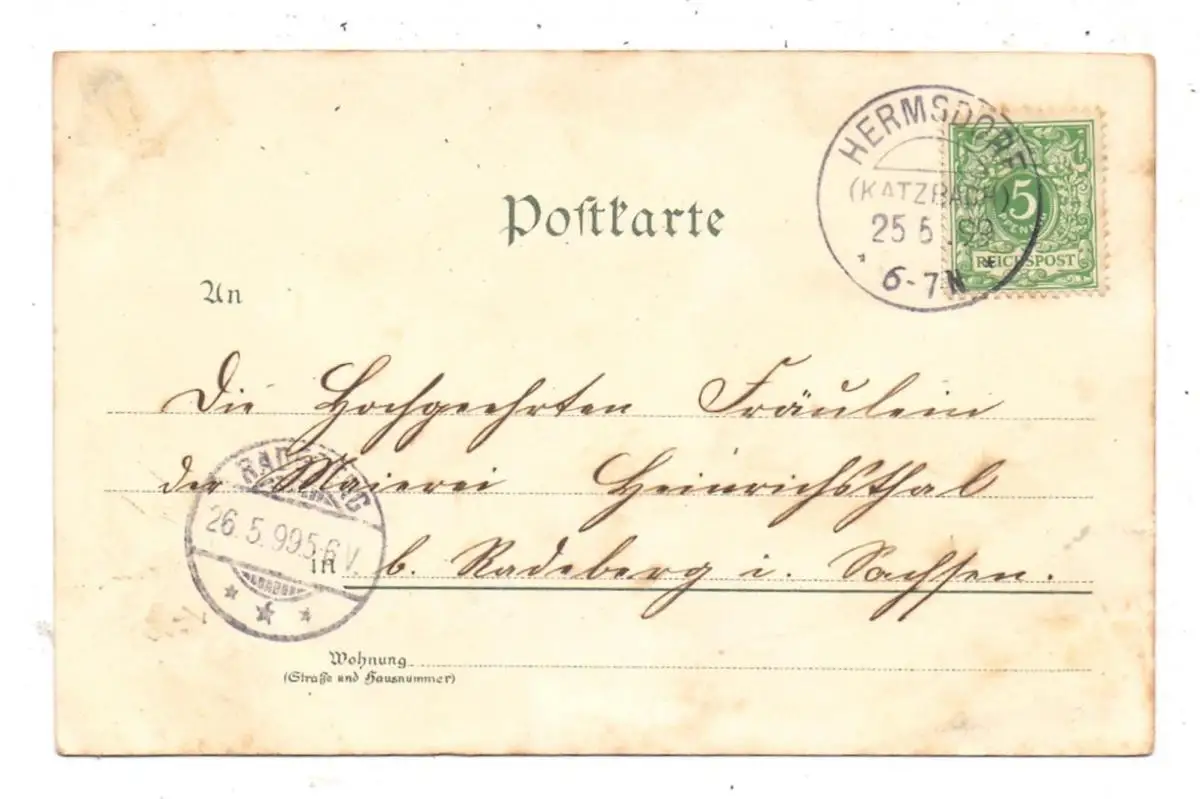 HERMSDORF
(KATZBACH)
25 5 99
6-7 N
5
PFENNIG
REICHSPOST
Postkarte
An
Die Hochgeehrten Fräulein
der Maierei Heinrichsthal
in b. Radeberg i. Sachsen.
RADEBERG
26. 5. 99 5-6 V.
Wohnung
(Straße und Hausnummer)